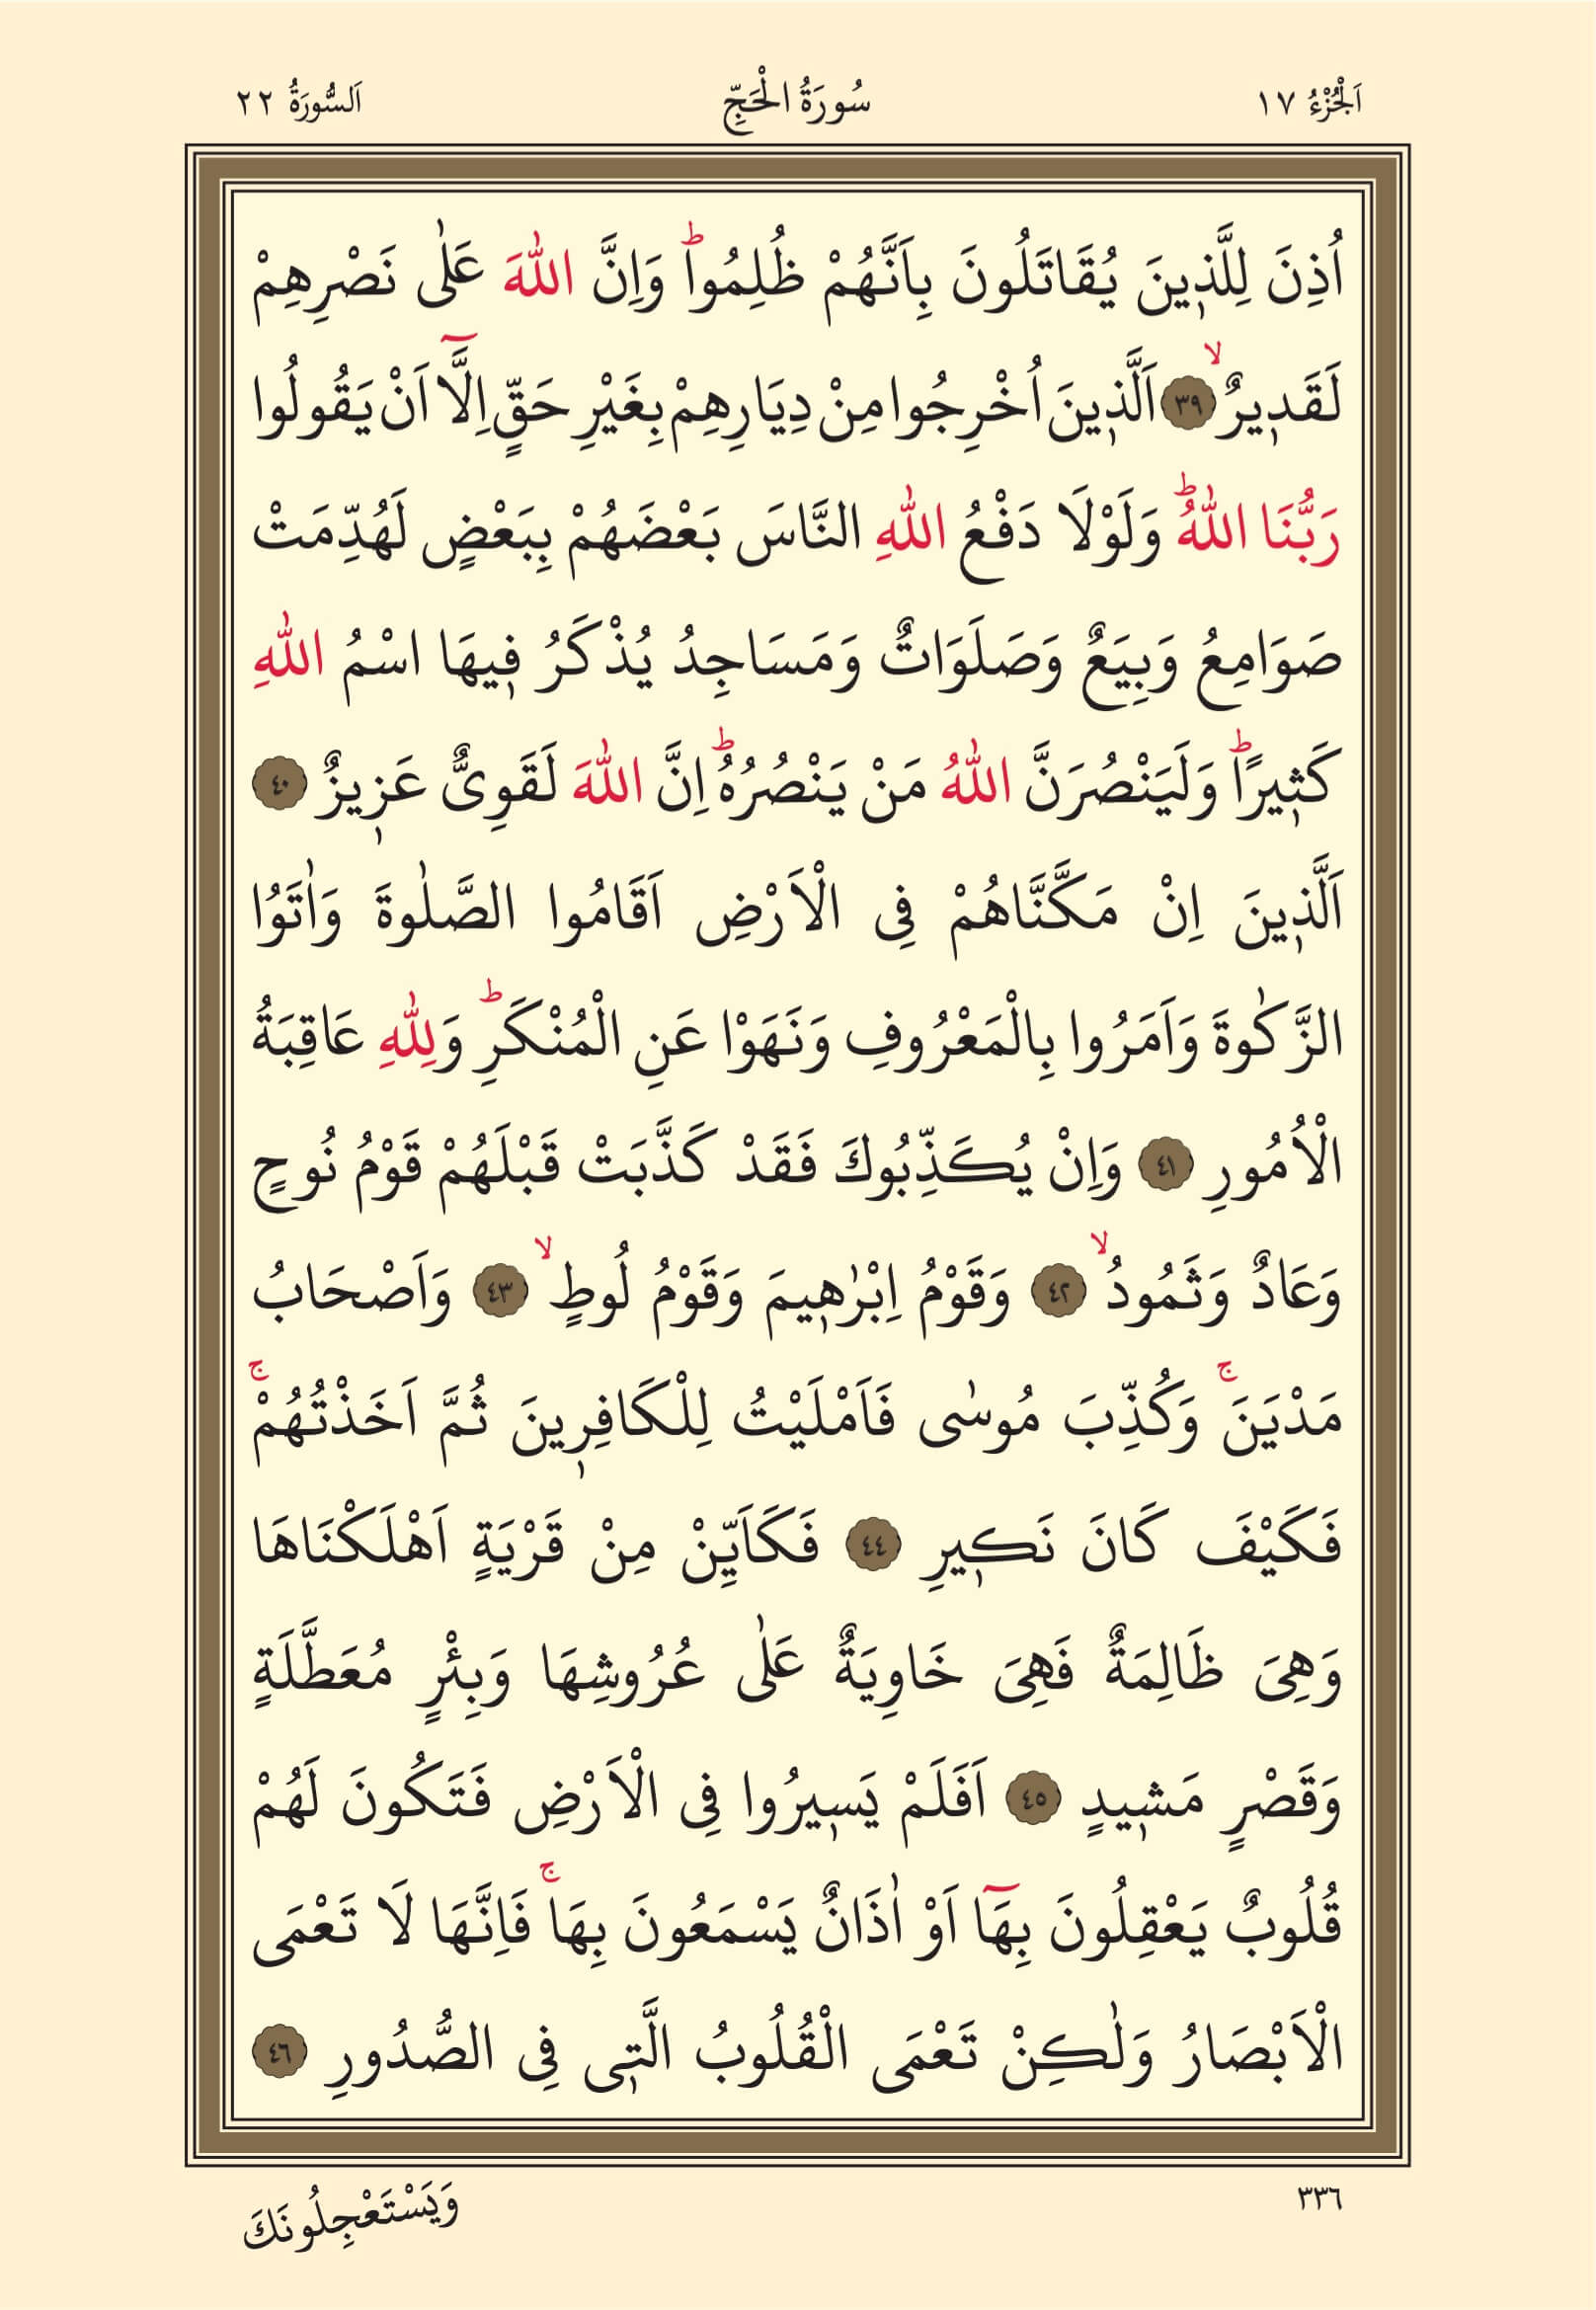 اَلْجُزْءُ ١٧
سُورَةُ الْحَجِّ
اَلسُّورَةُ ٢٢
اُذِنَ لِلَّذ۪ينَ يُقَاتَلُونَ بِاَنَّهُمْ ظُلِمُواۜ وَاِنَّ اللّٰهَ عَلٰى نَصْرِهِمْ
لَقَد۪يرٌۙ ﴿٣٩﴾ اَلَّذ۪ينَ اُخْرِجُوا مِنْ دِيَارِهِمْ بِغَيْرِ حَقٍّ اِلَّٓا اَنْ يَقُولُوا
رَبُّنَا اللّٰهُۜ وَلَوْلَا دَفْعُ اللّٰهِ النَّاسَ بَعْضَهُمْ بِبَعْضٍ لَهُدِّمَتْ
صَوَامِعُ وَبِيَعٌ وَصَلَوَاتٌ وَمَسَاجِدُ يُذْكَرُ ف۪يهَا اسْمُ اللّٰهِ
كَث۪يرًاۜ وَلَيَنْصُرَنَّ اللّٰهُ مَنْ يَنْصُرُهُۜ اِنَّ اللّٰهَ لَقَوِىٌّ عَز۪يزٌ ﴿٤٠﴾
اَلَّذ۪ينَ اِنْ مَكَّنَّاهُمْ فِى الْاَرْضِ اَقَامُوا الصَّلٰوةَ وَاٰتَوُا
الزَّكٰوةَ وَاَمَرُوا بِالْمَعْرُوفِ وَنَهَوْا عَنِ الْمُنْكَرِۜ وَلِلّٰهِ عَاقِبَةُ
الْاُمُورِ ﴿٤١﴾ وَاِنْ يُكَذِّبُوكَ فَقَدْ كَذَّبَتْ قَبْلَهُمْ قَوْمُ نُوحٍ
وَعَادٌ وَثَمُودُۙ ﴿٤٢﴾ وَقَوْمُ اِبْرٰه۪يمَ وَقَوْمُ لُوطٍۙ ﴿٤٣﴾ وَاَصْحَابُ
مَدْيَنَۚ وَكُذِّبَ مُوسٰى فَاَمْلَيْتُ لِلْكَافِر۪ينَ ثُمَّ اَخَذْتُهُمْۚ
فَكَيْفَ كَانَ نَك۪يرِ ﴿٤٤﴾ فَكَاَيِّنْ مِنْ قَرْيَةٍ اَهْلَكْنَاهَا
وَهِىَ ظَالِمَةٌ فَهِىَ خَاوِيَةٌ عَلٰى عُرُوشِهَا وَبِئْرٍ مُعَطَّلَةٍ
وَقَصْرٍ مَش۪يدٍ ﴿٤٥﴾ اَفَلَمْ يَس۪يرُوا فِى الْاَرْضِ فَتَكُونَ لَهُمْ
قُلُوبٌ يَعْقِلُونَ بِهَٓا اَوْ اٰذَانٌ يَسْمَعُونَ بِهَاۚ فَاِنَّهَا لَا تَعْمَى
الْاَبْصَارُ وَلٰكِنْ تَعْمَى الْقُلُوبُ الَّت۪ى فِى الصُّدُورِ ﴿٤٦﴾
٣٣٦
وَيَسْتَعْجِلُونَكَ